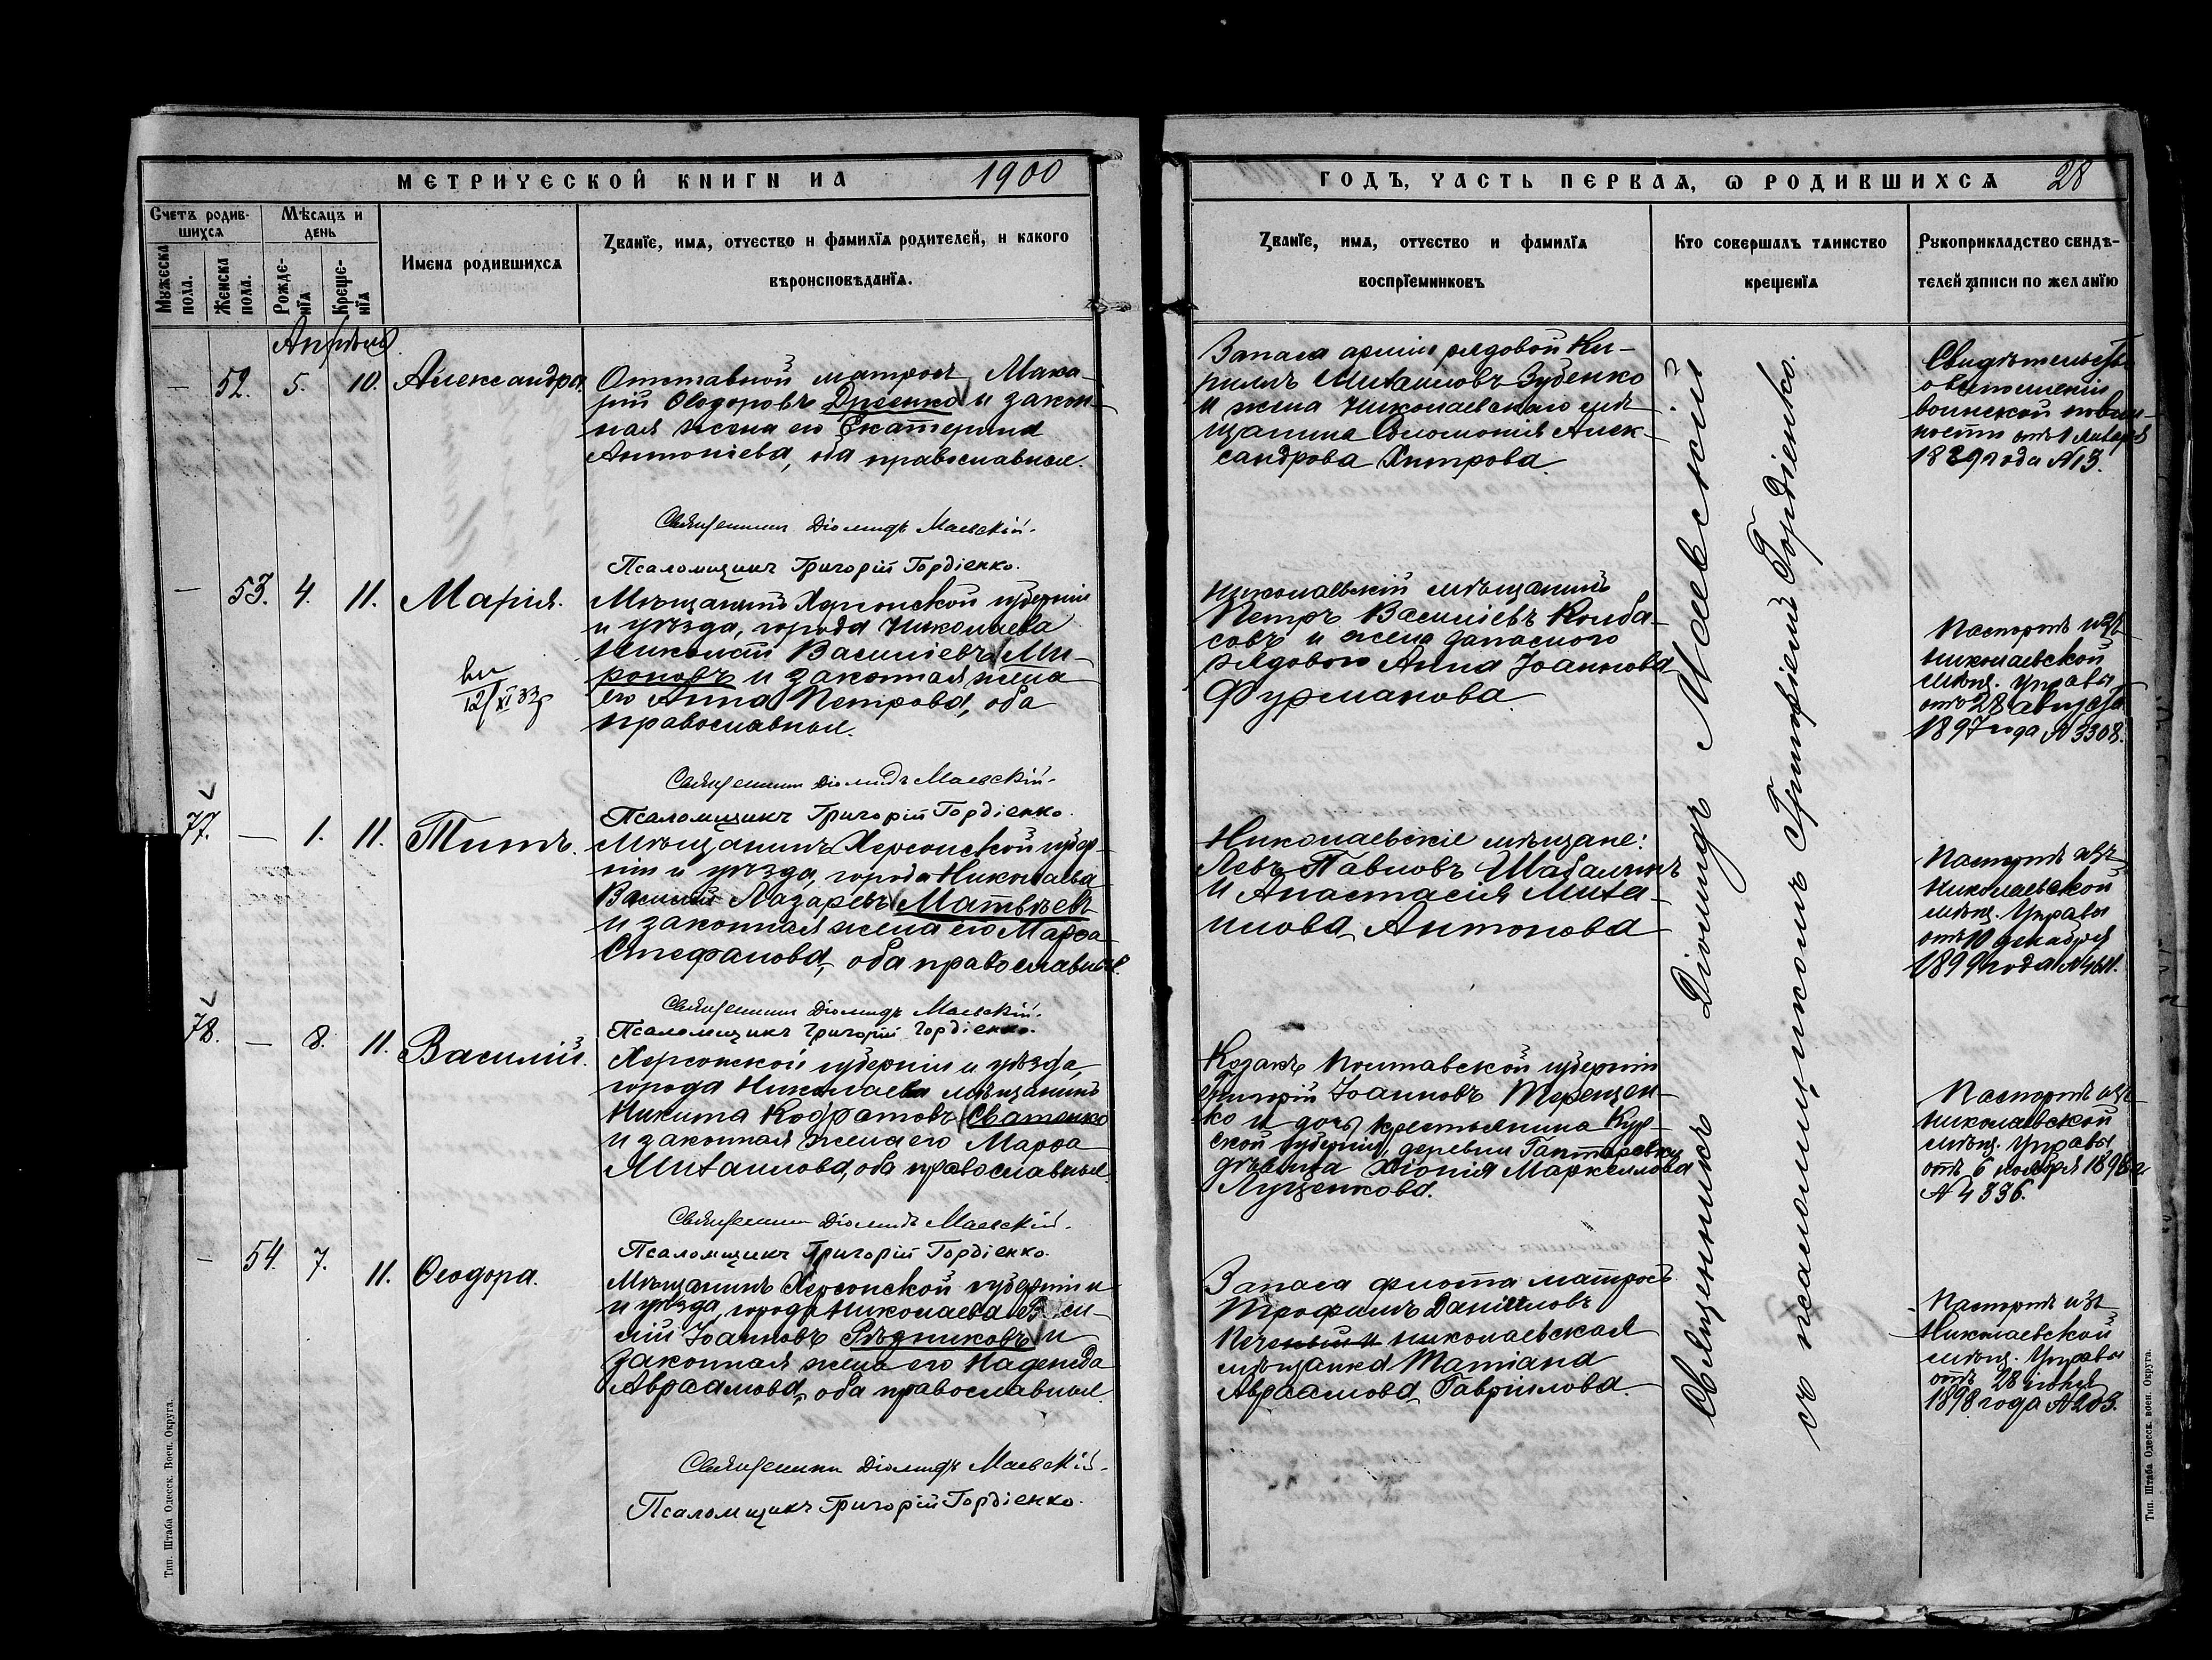 МЕТРИЧЕСКОЙ КНИГИ НА 1900
Счетъ родившихся
Мѣсяцъ и день
Имена родившихся
Званїе, имя, отчество и фамилїя родителей, и какого
вѣроисповѣданїя.
Мужеска пола.
Женска пола.
Рожденїя
Крещенїя
Апрѣль
— 52. 5. 10. Александра.
Отставной матросъ Мака-
рій Ѳеодоровъ и закон-
ная жена его Екатерина
Антоніева, оба православные.
Священникъ Діомидъ Маевскій.
Псаломщикъ Григорій Гордіенко.
— 53. 4. 11. Марія.
Мѣщанинъ Херсонской губерніи
и уѣзда, города Николаева
Николай Василіевъ Ми-
роновъ и законная жена
его Анна Петрова, оба
православные.
12/XI 33
Священникъ Діомидъ Маевскій.
Псаломщикъ Григорій Гордіенко.
77. — 1. 11. Титъ.
Мѣщанинъ Херсонской губер-
ніи и уѣзда, города Николаева
Василій Лазаревъ Матвѣевъ
и законная жена его Марѳа
Стефанова, оба православные.
Священникъ Діомидъ Маевскій.
Псаломщикъ Григорій Гордіенко.
78. — 8. 11. Василій.
Херсонской губерніи и уѣзда,
города Николаева мѣщанинъ
Никита Кодратовъ Сватенко
и законная жена его Марѳа
Михаилова, оба православные.
Священникъ Діомидъ Маевскій.
Псаломщикъ Григорій Гордіенко.
— 54. 7. 11. Ѳеодора.
Мѣщанинъ Херсонской губерніи и
и уѣзда, города Николаева Васи-
лій Іоанновъ Рѣдниковъ и
законная жена его Надежда
Авраамова, оба православные.
Священникъ Діомидъ Маевскій.
Псаломщикъ Григорій Гордіенко.
Тип. Штаба Одесск. Воен. Округа.
ГОДЪ, ЧАСТЬ ПЕРВАЯ, Ѡ РОДИВШИХСЯ 28
Званїе, имя, отчество и фамилїя
воспрїемниковъ
Кто совершалъ таинство
крещенїя
Рукоприкладство свидѣ-
телей записи по желанїю
Запаса арміи рядовой Ки-
риллъ Михаиловъ Зубенко
и жена Николаевскаго мѣ-
щанина Соломонія Алек-
сандрова Хитрова.
Свидѣтельство
о выполненіи
воинской повин-
ности отъ 1 Января
1889 года № 13.
Николаевскій мѣщанинъ
Петръ Василіевъ Колба-
совъ и жена запаснаго
рядового Анна Іоаннова
Фурманова.
Паспортъ изъ
Николаевской
мѣщ. Управы
отъ 28 августа
1897 года № 3308.
Николаевскіе мѣщане:
Левъ Павловъ Шабалинъ
и Анастасія Миха-
илова Антонова
Паспортъ изъ
Николаевской
мѣщ. Управы
отъ 10 декабря
1899 года №
Козакъ Полтавской губерніи
Григорій Іоанновъ Терещен-
ко и дочь крестьянина Кур-
ской губерніи, деревни
дѣвица Хіонія Маркеллова
Луценкова.
Паспортъ изъ
Николаевской
мѣщ. Управы
отъ 6 ноября 1898 г
№ 4336.
Запаса флота матросъ
Трофимъ Даніиловъ
николаевская
мѣщанка Татіана
Авраамова Гавріилова.
Паспортъ изъ
Николаевской
мѣщ. Управы
отъ 28 іюня
1898 года № 203.
Священникъ Діомидъ Маевскій
съ псаломщикомъ Григоріемъ Гордіенко.
Тип. Штаба Одесск. воен. Округа.